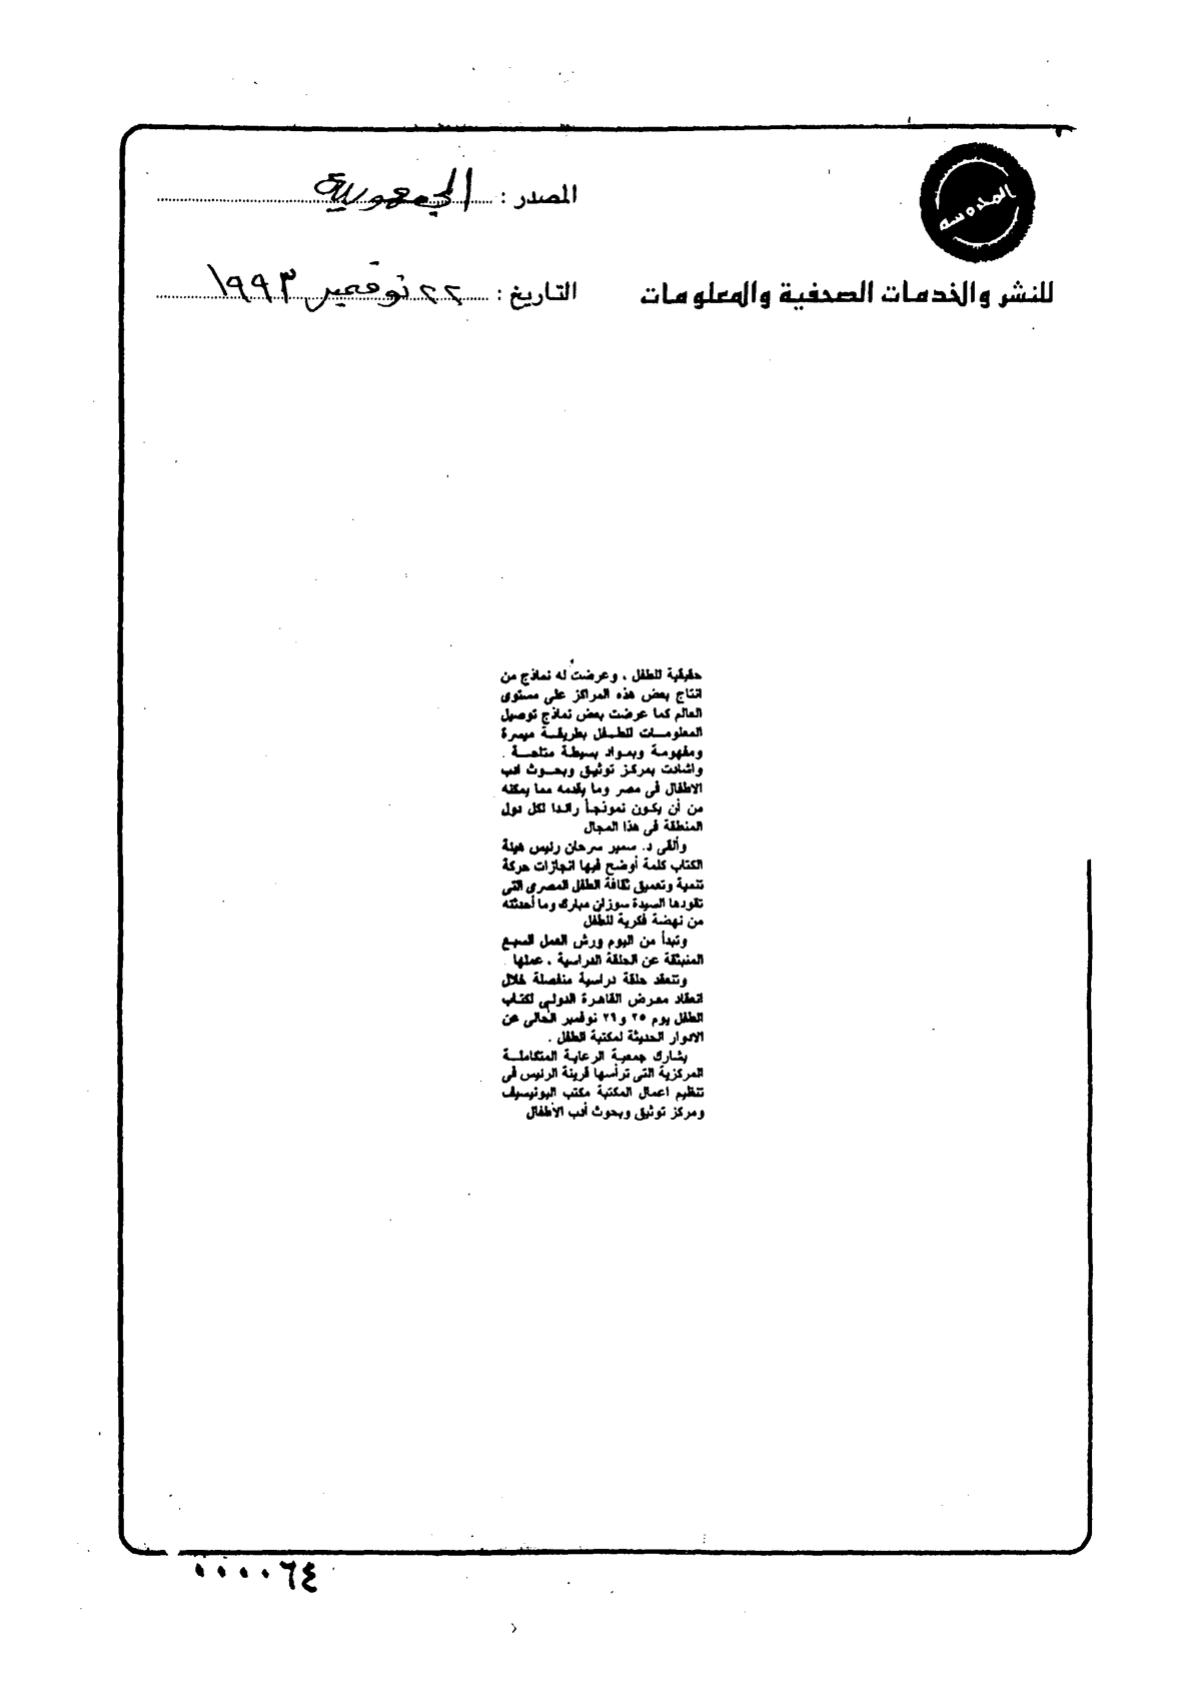 المحروسة
للنشر والخدمات الصحفية والمعلومات
المصدر : الجمهورية
التاريخ : ٢٢ نوفمبر ١٩٩٣
حقيقية للطفل ، وعرضت له نماذج من
انتاج بعض هذه المراكز على مستوى
العالم كما عرضت بعض نماذج توصيل
المعلومات للطفل بطريقة ميسرة
ومفهومة وبمواد بسيطة متاحة .
واشادت بمركز توثيق وبحوث ادب
الاطفال فى مصر وما يقدمه مما يمكنه
من أن يكون نموذجاً رائدا لكل دول
المنطقة فى هذا المجال
وألقى د. سمير سرحان رئيس هيئة
الكتاب كلمة أوضح فيها انجازات حركة
تنمية وتعميق ثقافة الطفل المصرى التى
تقودها السيدة سوزان مبارك وما أحدثته
من نهضة فكرية للطفل
وتبدأ من اليوم ورش العمل السبع
المنبثقة عن الحلقة الدراسية ، عملها
وتنعقد حلقة دراسية منفصلة خلال
انعقاد معرض القاهرة الدولى لكتاب
الطفل يوم ٢٥ و٢٦ نوفمبر الحالى عن
الادوار الحديثة لمكتبة الطفل .
يشارك جمعية الرعاية المتكاملة
المركزية التى ترأسها قرينة الرئيس فى
تنظيم اعمال المكتبة مكتب اليونيسيف
ومركز توثيق وبحوث أدب الأطفال
٠٠٠٠٦٤